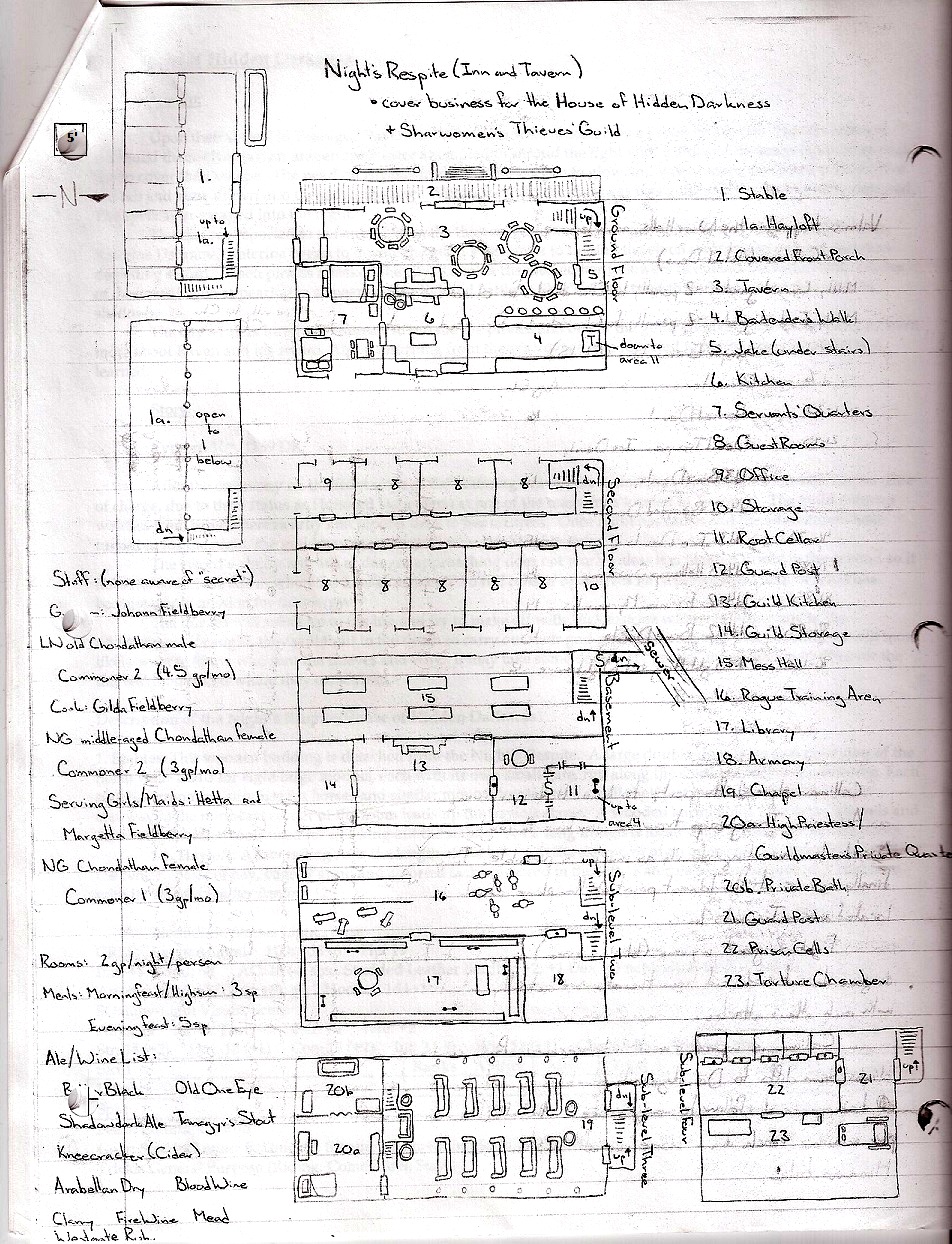 Night's Respite (Inn and Tavern)
• cover business for the House of Hidden Darkness
+ Sharwomen's Thieves' Guild
5'
N
1.
up to
1a.
1a.
open
to
1
below
dn
Ground Floor
2
3
up
5
7
6
4
T
down to
area 11
Second Floor
9 8 8 8
dn
8 8 8 8 8 10
Basement
15
S dn
sewer
dn
14 13 12 S 11
up to
area 4
Sub-level Two
16
up
dn
17 18
Sub-level Three
20b
20a
19
dn
up
Sub-level Four
22 21
up
23
1. Stable
1a. Hayloft
2. Covered Front Porch
3. Tavern
4. Bartender's Walk
5. Jake (under stairs)
6. Kitchen
7. Servants' Quarters
8. Guest Rooms
9. Office
10. Storage
11. Root Cellar
12. Guard Post
13. Guild Kitchen
14. Guild Storage
15. Mess Hall
16. Rogue Training Area
17. Library
18. Armory
19. Chapel
20a. High Priestess/
Guildmaster's Private Quarte
20b. Private Bath
21. Guard Post
22. Prison Cells
23. Torture Chamber
Staff: (none aware of "secret")
Johann Fieldberry
LN old Chondathan male
Commoner 2 (4.5 gp/mo)
Cook: Gilda Fieldberry
NG middle-aged Chondathan female
Commoner 2 (3gp/mo)
Serving Girls/Maids: Hetta and
Margetta Fieldberry
NG Chondathan female
Commoner 1 (3gp/mo)
Rooms: 2gp/night/person
Meals: Morningfeast/Highsun: 3sp
Eveningfeast: 5sp
Ale/Wine List:
Black Old One Eye
Shadowdark Ale Tanagyr's Stout
Kneecracker (Cider)
Arabellan Dry Bloodwine
Clarry Firewine Mead
Westgate